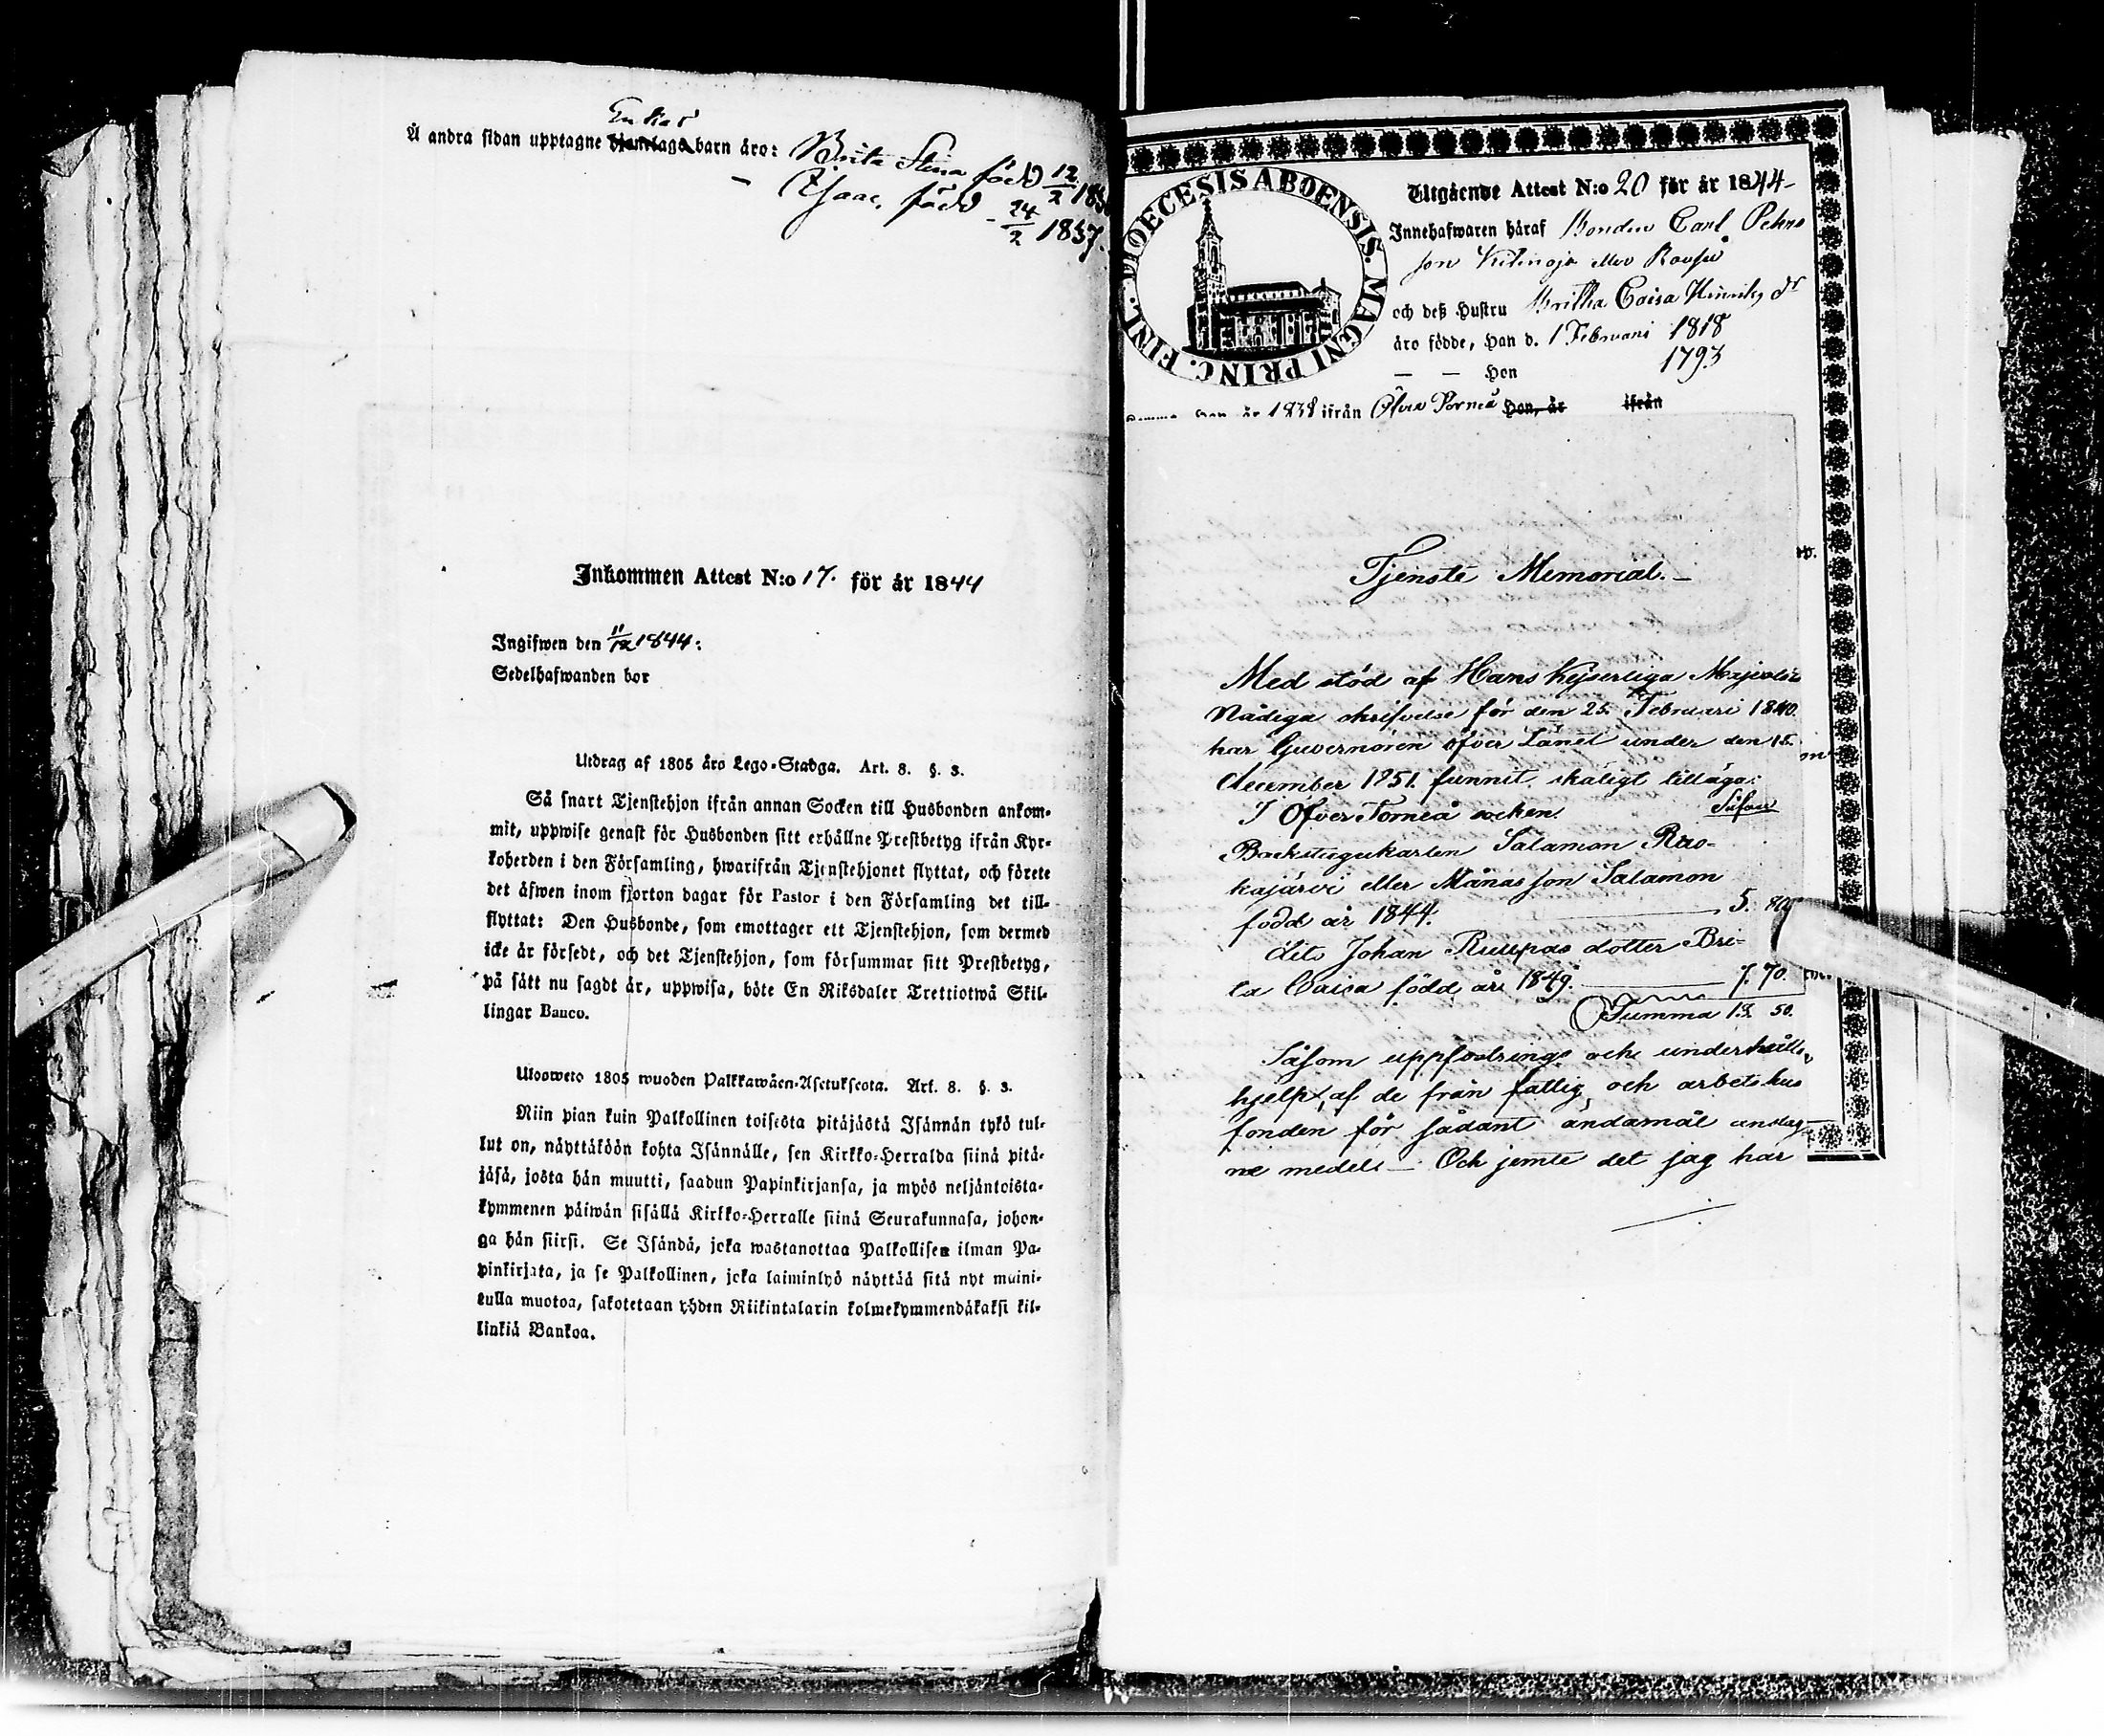 Enkas
Å andra sidan upptagne barn äro: Brita Stina född 12/2 183
— Isaac, född - 24/2 1837.
Inkommen Attest N:o 17. för år 1844
Ingifwen den 11/12 1844:
Sedelhafwanden bor
Utdrag af 1805 års Lego-Stadga. Art. 8. §. 3.
Så snart Tjenstehjon ifrån annan Socken till Husbonden ankom-
mit, uppwise genast för Husbonden sitt erhållne Prestbetyg ifrån Kyr-
koherden i den Församling, hwarifrån Tjenstehjonet flyttat, och förete
det äfwen inom fjorton dagar för Pastor i den Församling det till-
flyttat: Den Husbonde, som emottager ett Tjenstehjon, som dermed
icke är försedt, och det Tjenstehjon, som försummar sitt Prestbetyg,
på sätt nu sagdt är, uppwisa, böte En Riksdaler Trettiotwå Skil-
lingar Banco.
Ulooweto 1805 wuoden Palkkawäen-Asetuksesta. Art. 8. §. 3.
Niin pian kuin Palkollinen toisesta pitäjästä Isännän tykö tul-
lut on, näyttäköön kohta Isännälle, sen Kirkko-Herralda siinä pitä-
jäsä, josta hän muutti, saadun Papinkirjansa, ja myös neljäntoista-
kymmenen päiwän sisällä Kirkko-Herralle siinä Seurakunnasa, johon-
ga hän siirsi. Se Isändä, joka wastanottaa Palkollisen ilman Pa-
pinkirjata, ja se Palkollinen, joka laiminlyö näyttää sitä nyt maini-
tulla muotoa, sakotetaan yhden Riikintalarin kolmekymmendäkaksi kil-
linkiä Bankoa.
DIOECESIS ABOENSIS. MAGNI PRINC. FINL.
Utgående Attest N:o 20 för år 1844-
Innehafwaren häraf Bonden Carl Pehrs
son eller
och deß Hustru Britha Caisa Hinriks dr
äro födde, Han d. 1 Februari 1818
— — Hon 1793
år 1838 ifrån Öfver Torneå Hon, år ifrån
Tjenste Memorial. -
Med stöd af Hans Kejserliga Majestäts
Nådiga skrifvelse för den 25 Februari 1840.
har Guvernören öfver Länet under den 15.
december 1851. funnit skäligt tillägga:
I Öfver Torneå socken. Silfver
Backstugukarlen Salamon Rao-
kajärvi eller Månas son Salamon
född år 1844. — 5. 80
dito Johan Ruupas dotter Bri-
ta Caisa född år 1849. — 7. 70.
Summa 13. 50.
Såsom uppfostrings och underhålls
hjelp, af de från fattig och arbetshus
fonden för sådant ändamål anslag-
ne medel - Och jemte det jag har